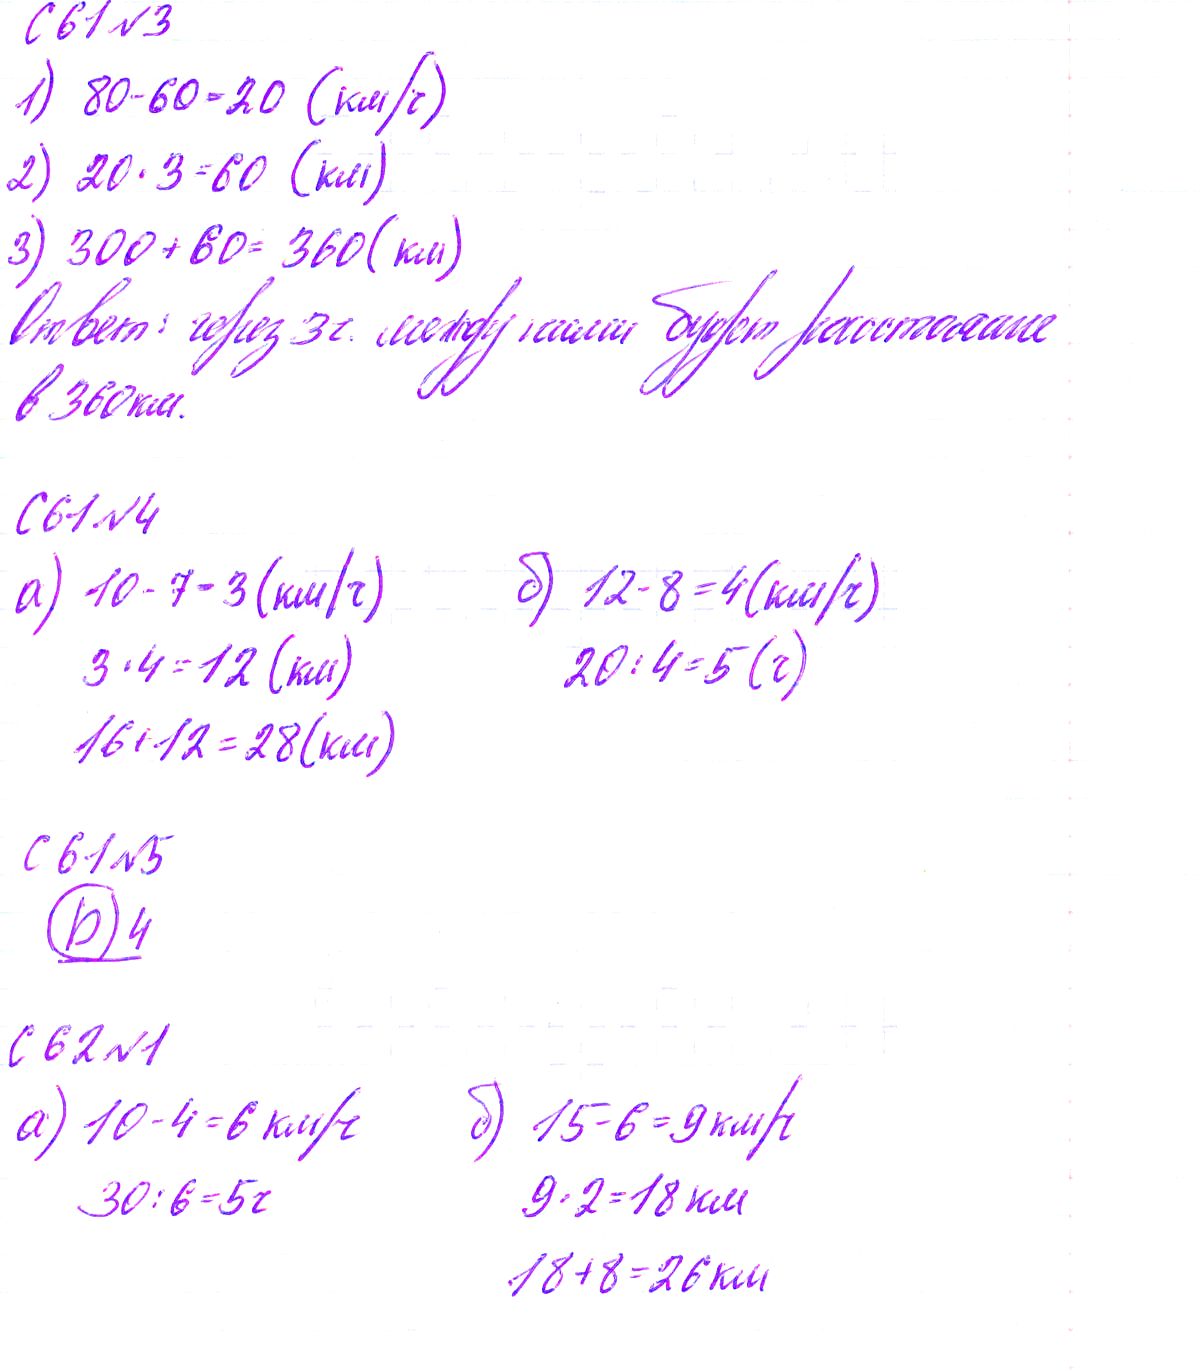 С 61 №3
1) 80-60=20 (км/ч)
2) 20·3=60 (км)
3) 300+60=360(км)
Ответ: через 3ч. между ними будет расстояние
в 360км.
С 61 №4
а) 10-7=3(км/ч)
3·4=12 (км)
16+12=28(км)
б) 12-8=4(км/ч)
20:4=5(ч)
С 61 №5
D) 4
С 62 №1
а) 10-4=6 км/ч
30:6=5ч
б) 15-6=9 км/ч
9·2=18 км
18+8=26 км